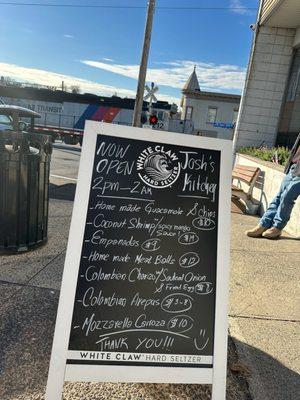 NOW
OPEN
2PM-2AM
WHITE CLAW
HARD SELZER
Josh's
Kitchen
- Home made Guacamole $ chips $10
- Coconut Shrimp w/ spicy mango $14
- Empanadas $9
- Home made Meat Balls $12
- Colombian Chorizo w/ Salad onion & Fried Egg $12
- Colombian Arepas $5-8
- Mozzarella Carroza $10
THANK YOU!!!
WHITE CLAW HARD SELTZER
NJ TRANSIT